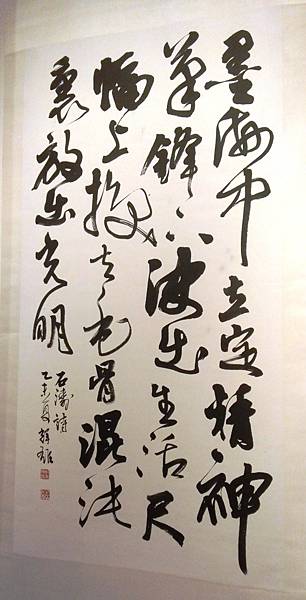 墨海中立定精神
筆鋒下決出生活尺
幅上換去毛骨混沌
裏放出光明
石濤詩
乙未夏